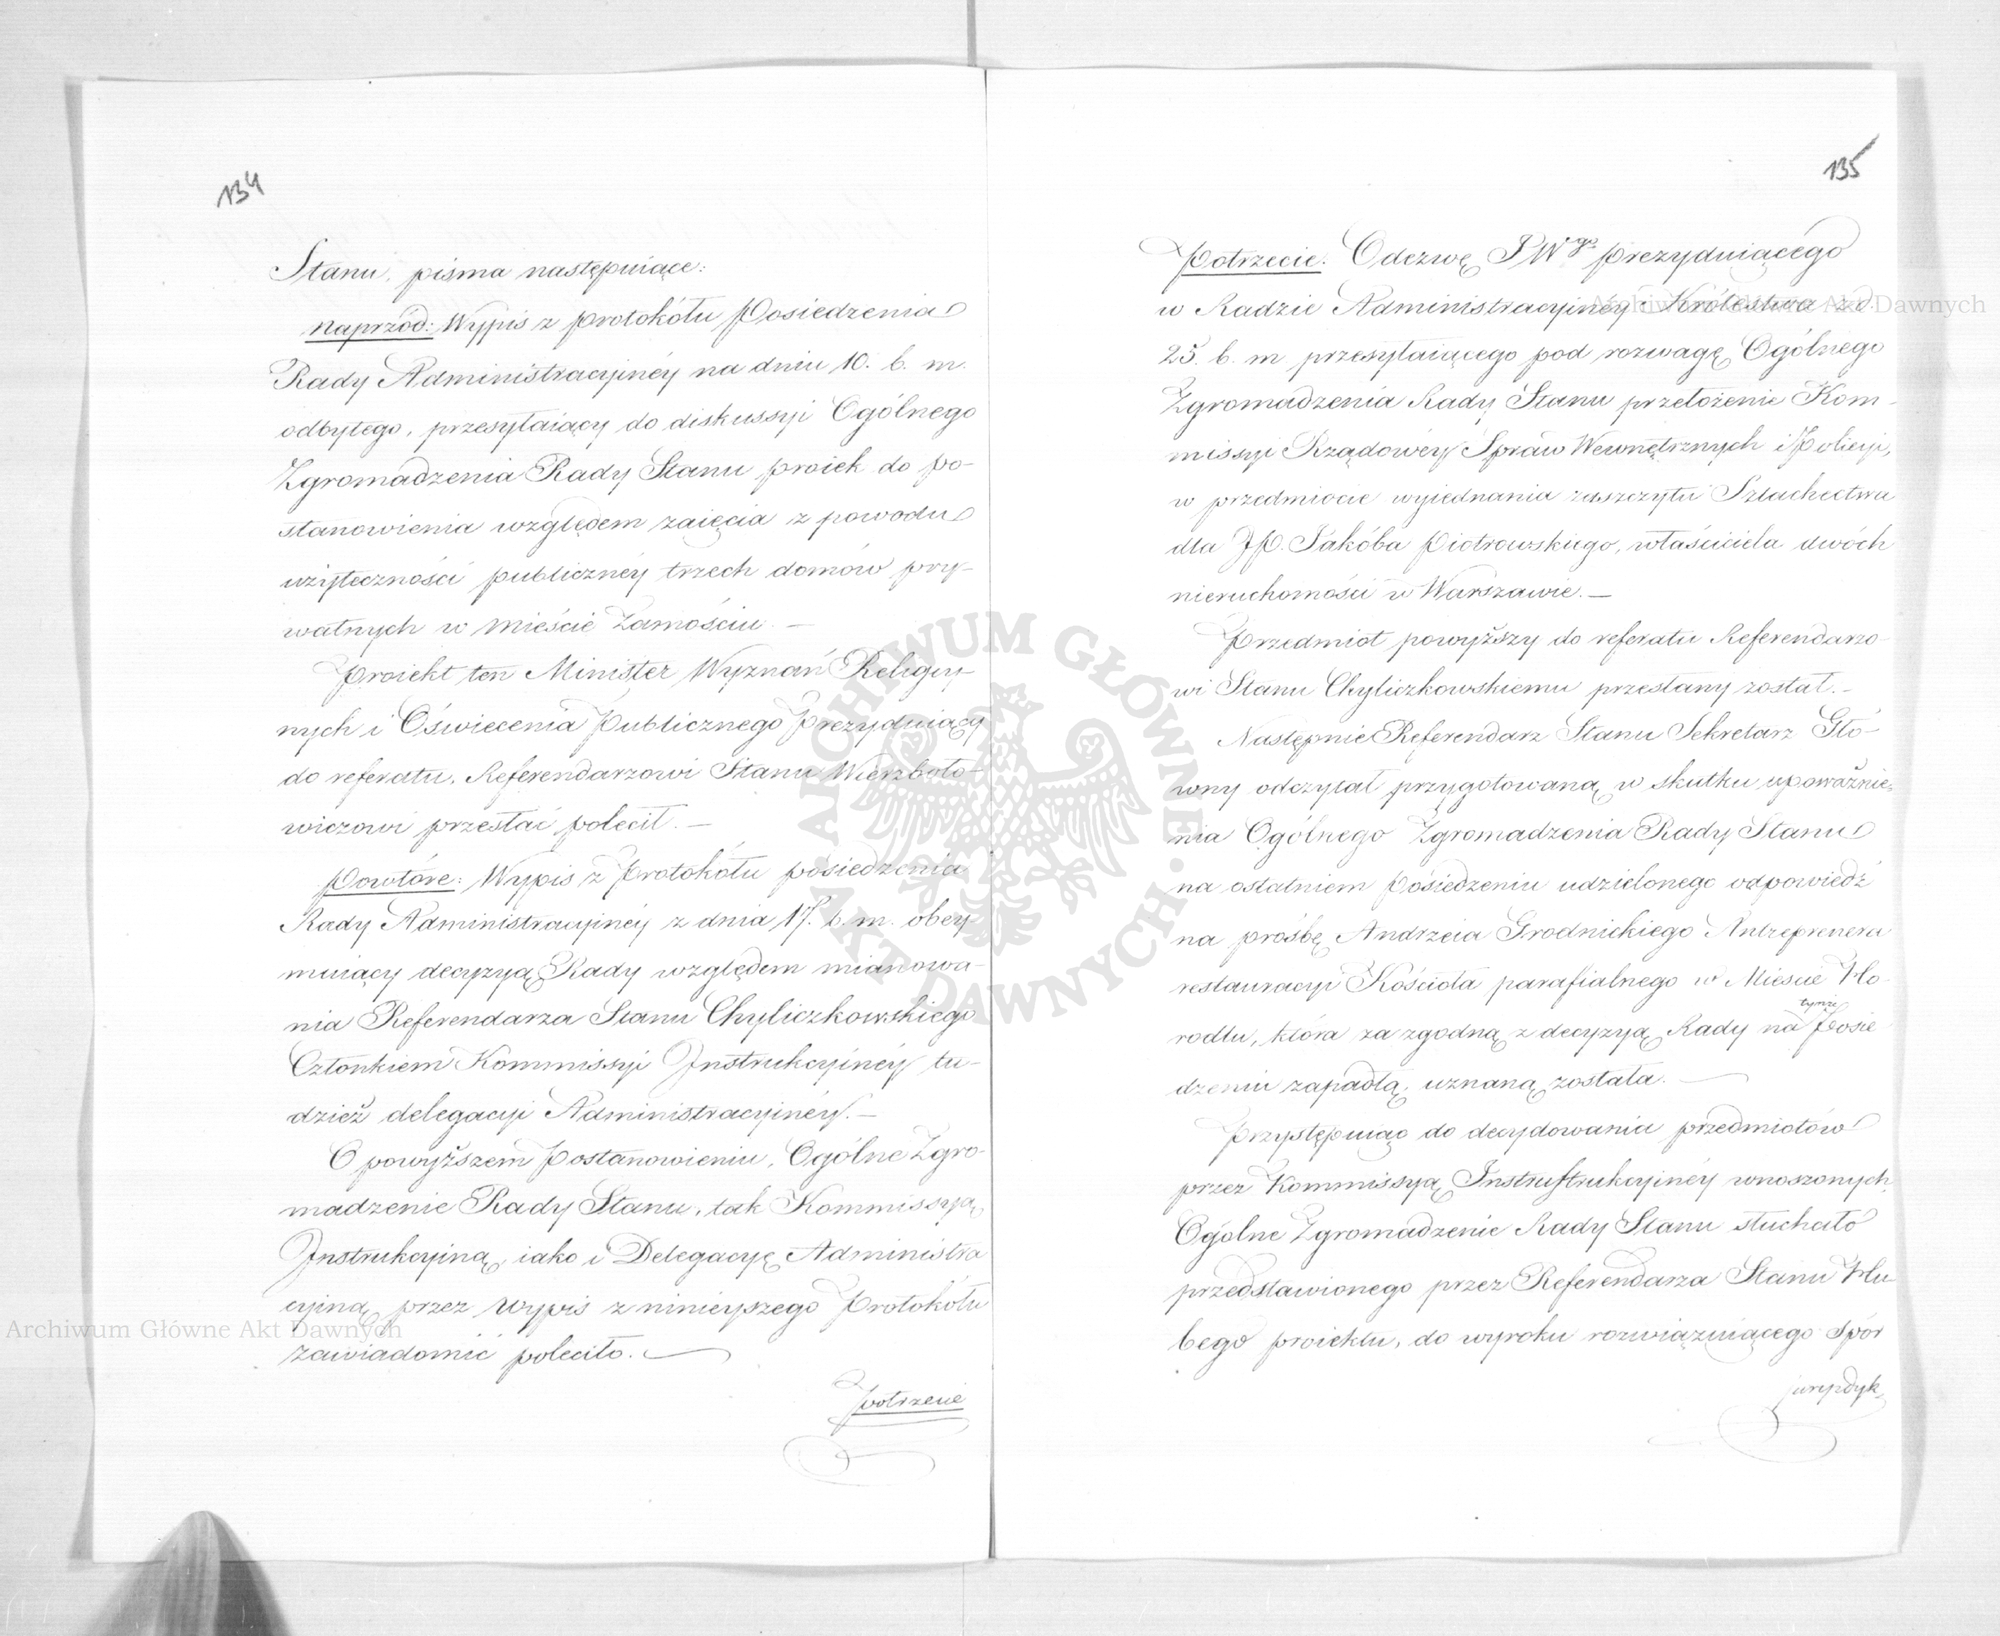 134
Stanu, pisma następuiące:
Naprzód: Wypis z Protokółu Posiedzenia
Rady Administracyinéy na dniu 10. b. m.
odbytego, przesyłaiący do diskussyi Ogólnego
Zgromadzenia Rady Stanu proiek do po-
stanowienia względem zaięcia z powodu
użyteczności publicznéy trzech domów pry-
watnych w mieście Zamościu. —
Proiekt ten Minister Wyznań Religiy-
nych i Oświecenia Publicznego Prezyduiący
do referatu, Referendarzowi Stanu Wierzboło-
wiczowi przesłać polecił. —
Powtóre: Wypis z Protokółu posiedzenia
Rady Administracyinéy z dnia 17. b. m. obey
muiący decyzyą Rady względem mianowa-
nia Referendarza Stanu Chyliczkowskiego
Członkiem Kommissyi Instrukcyinéy tu-
dzież delegacyi Administracyinéy. —
O powyższem Postanowieniu, Ogólne Zgro-
madzenie Rady Stanu, tak Kommissyą
Instrukcyiną, iako i Delegacyę Administra
cyiną przez wypis z ninieyszego Protokółu
zawiadomić poleciło. —
potrzecie
135
Potrzecie: Odezwę JWgo Prezyduiącego
w Radzie Administracyinéy Królestwa z d.
25. b. m przesyłaiącego pod rozwagę Ogólnego
Zgromadzenia Rady Stanu przełożenie Kom-
missyi Rządowéy Spraw Wewnętrznych i Policyi,
w przedmiocie wyiednania zaszczytu Szlachectwa
dla JP. Jakóba Piotrowskiego, właściciela dwóch
nieruchomości w Warszawie. —
Przedmiot powyższy do referatu Referendarzo
wi Stanu Chyliczkowskiemu przesłany został. —
Następnie Referendarz Stanu Sekretarz Głó-
wny odczytał przygotowaną w skutku upoważnie-
nia Ogólnego Zgromadzenia Rady Stanu
na ostatniem Posiedzeniu udzielonego odpowiedź
na prośbę Andrzeia Grodnickiego Antreprenera
restauracyi Kościoła parafialnego w Mieście Ho-
rodłu, która za zgodną z decyzyą Rady na tymże Posie
dzeniu zapadłą, uznaną została. —
Przystępuiąc do decydowania przedmiotów
przez Kommissyą Instrukstrukcyinéy wnoszonych,
Ogólne Zgromadzenie Rady Stanu słuchało
przedstawionego przez Referendarza Stanu Hu
bego proiektu, do wyroku rozwiązuiącego spór
jurysdyk-
Archiwum Główne Akt Dawnych
Archiwum Główne Akt Dawnych
ARCHIWUM GŁÓWNE AKT DAWNYCH